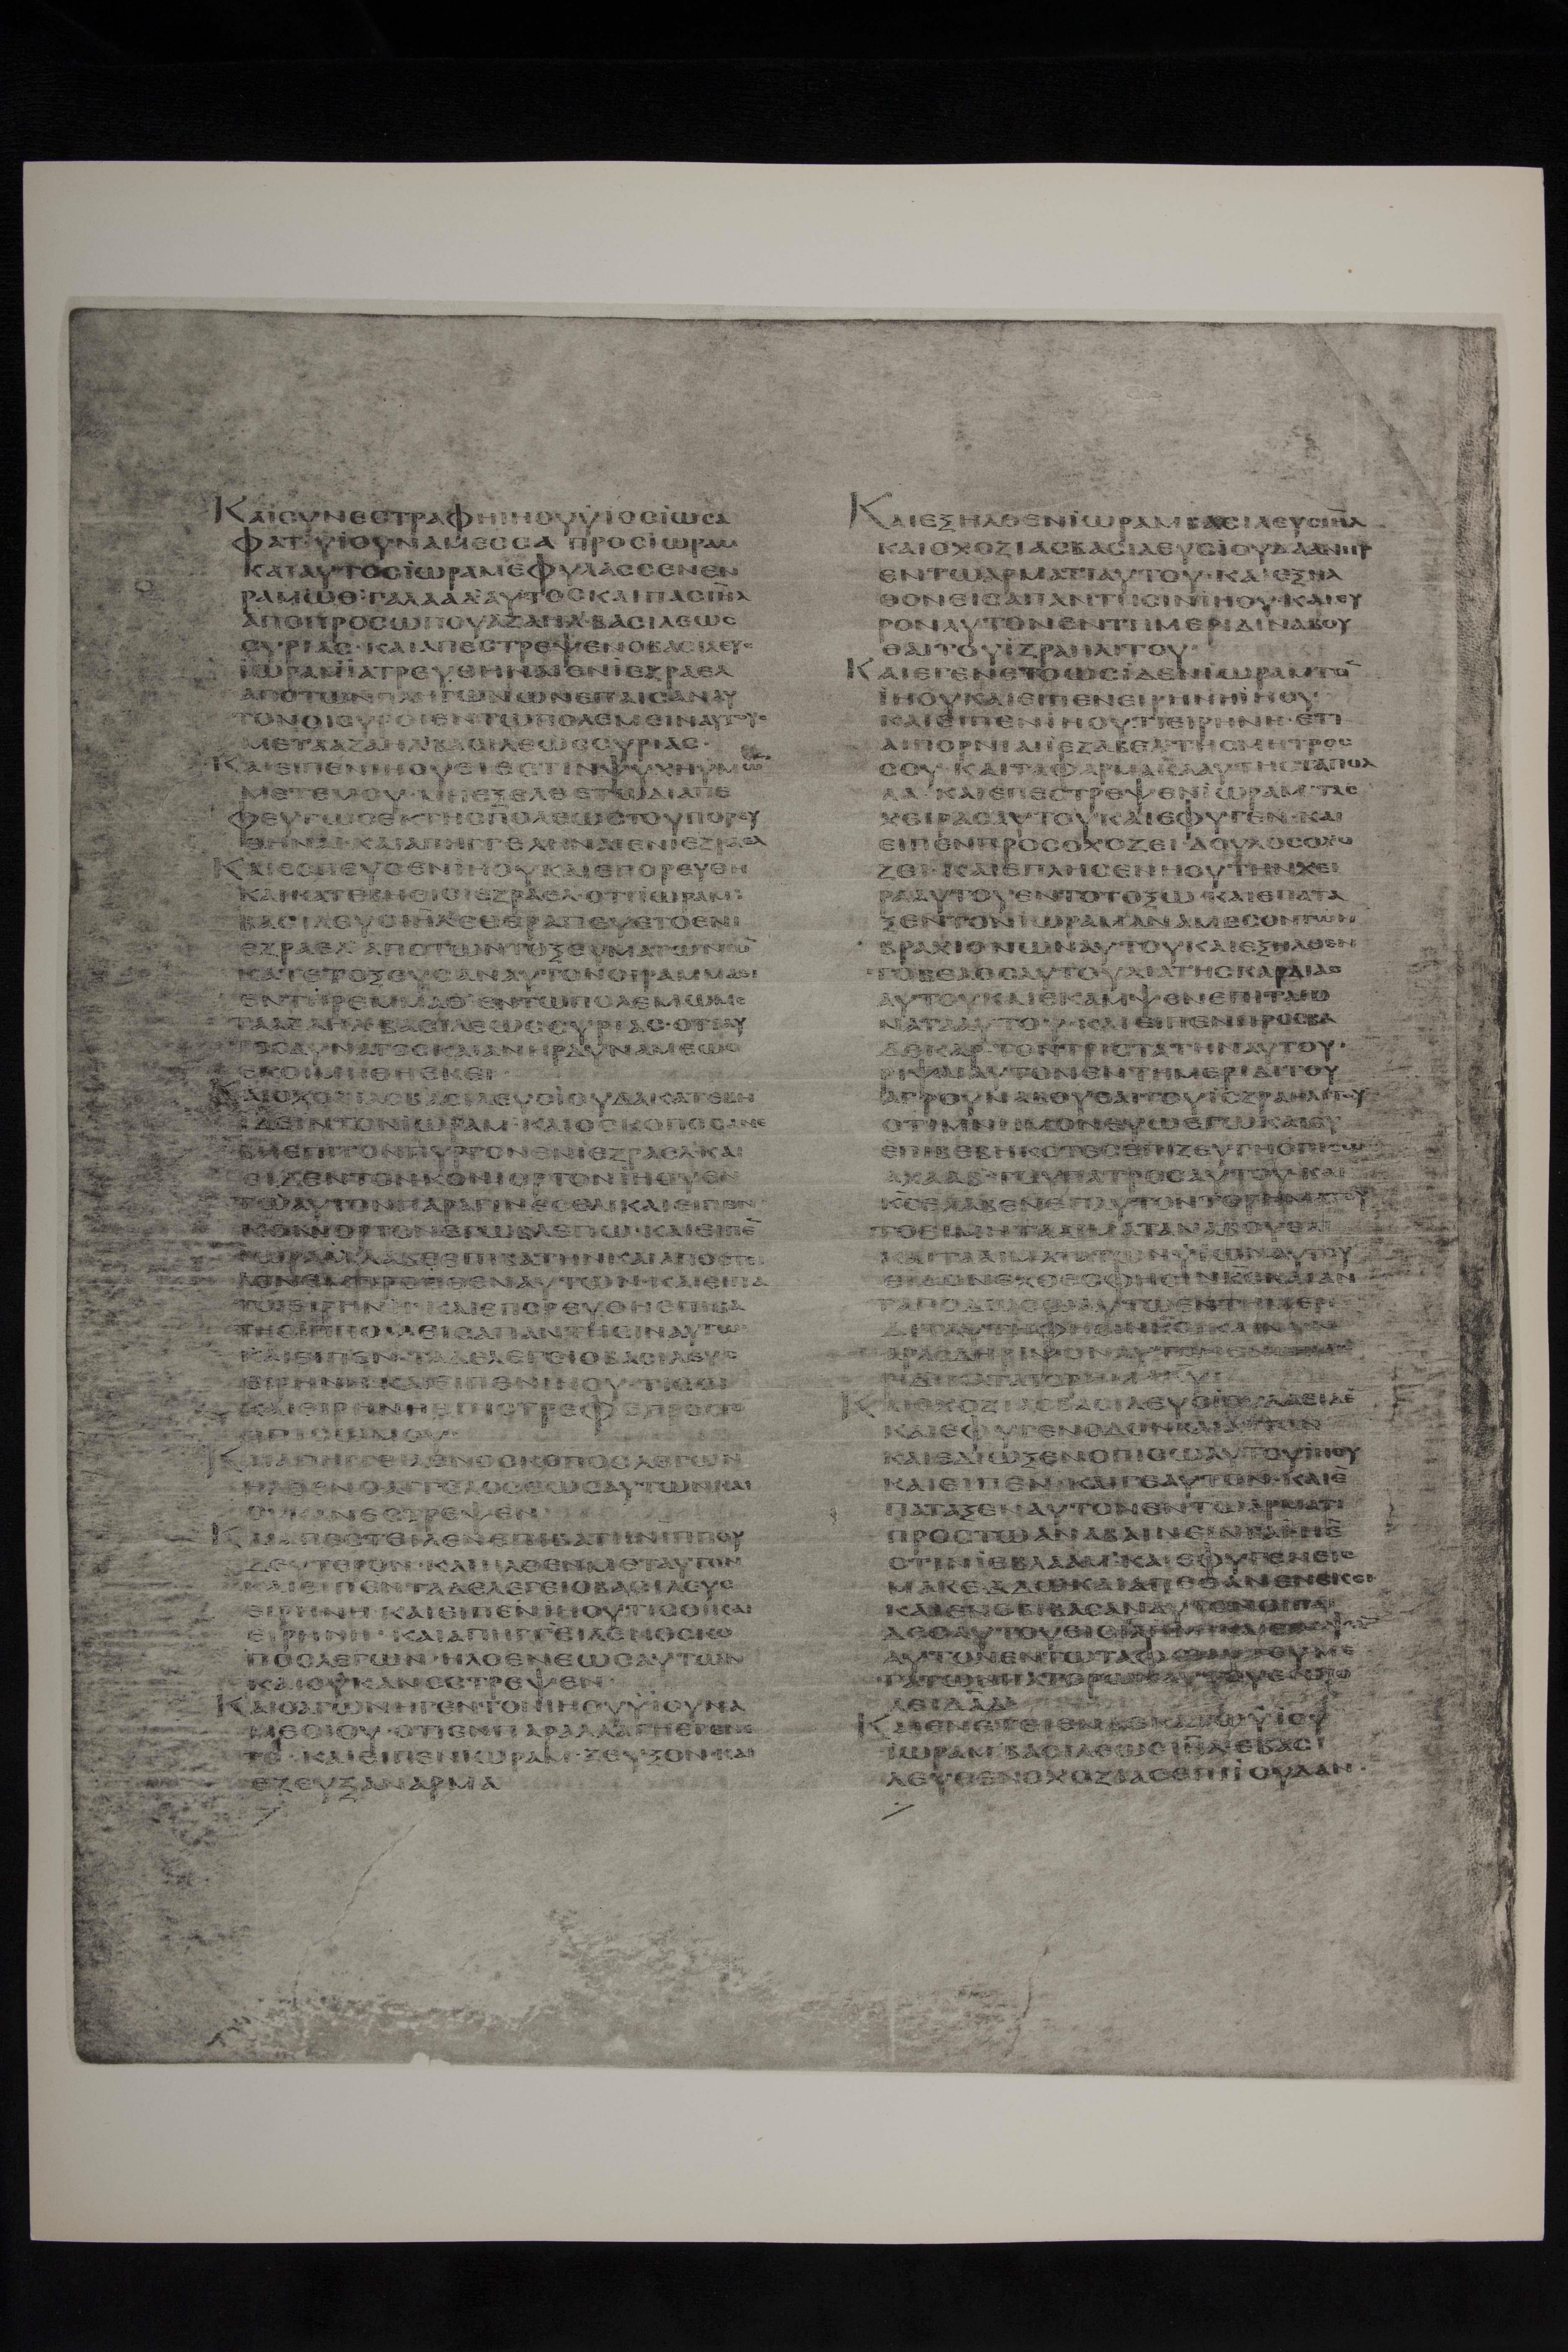 ΚΑΙΣΥΝΕΣΤΡΑΦΗΙΗΟΥΥΙΟΣΙΩΣΑ
ΦΑΤ·ΥΙΟΥΝΑΜΕΣΣΑ ΠΡΟΣΙΩΡΑΜ
ΚΑΙΑΥΤΟΣΙΩΡΑΜΕΦΥΛΑΣΣΕΝΕΝ
ΡΑΜΩΘ ΓΑΛΑΑΔ ΑΥΤΟΣΚΑΙΠΑΣΙΗΛ
ΑΠΟΠΡΟΣΩΠΟΥΑΖΑΗΛ·ΒΑΣΙΛΕΩΣ
ΣΥΡΙΑΣ·ΚΑΙΑΠΕΣΤΡΕΨΕΝΟΒΑΣΙΛΕΥΣ
ΙΩΡΑΜΙΑΤΡΕΥΘΗΝΑΙΕΝΙΕΖΡΑΕΛ
ΑΠΟΤΩΝΠΛΗΓΩΝΩΝΕΠΑΙΣΑΝΑΥ
ΤΟΝΟΙΣΥΡΟΙΕΝΤΩΠΟΛΕΜΕΙΝΑΥΤΟΥΣ
ΜΕΤΑΑΖΑΗΛΒΑΣΙΛΕΩΣΣΥΡΙΑΣ·
ΚΑΙΕΙΠΕΝΙΗΟΥΕΙΕΣΤΙΝΨΥΧΗΥΜΩΝ
ΜΕΤΕΜΟΥ·ΜΗΕΞΕΛΘΕΤΩΔΙΑΠΕ
ΦΕΥΓΩΣΕΚΤΗΣΠΟΛΕΩΣΤΟΥΠΟΡΕΥ
ΘΗΝΑΙ·ΚΑΙΑΠΗΓΓΕΛΗΝΑΙΕΝΙΕΖΡΑΕΛ
ΚΑΙΕΣΠΕΥΣΕΝΙΗΟΥΚΑΙΕΠΟΡΕΥΘΗ
ΚΑΙΚΑΤΕΒΗΕΙΣΙΕΖΡΑΕΛ·ΟΤΙΙΩΡΑΜ
ΒΑΣΙΛΕΥΣΙΗΛΕΘΕΡΑΠΕΥΕΤΟΕΝΙ
ΕΖΡΑΕΛ ΑΠΟΤΩΝΤΟΞΕΥΜΑΤΩΝΩΝ
ΚΑΤΕΤΟΞΕΥΣΑΝΑΥΤΟΝΟΙΡΑΜΜΑΕΙ
ΕΝΤΗΡΕΜΜΑΘ ΕΝΤΩΠΟΛΕΜΩΜΕ
ΤΑΑΖΑΗΛ ΒΑΣΙΛΕΩΣΣΥΡΙΑΣ·ΟΤΙΑΥ
ΤΟΣΔΥΝΑΤΟΣΚΑΙΑΝΗΡΔΥΝΑΜΕΩΣ
ΕΚΟΙΜΗΘΗΕΚΕΙ
ΚΑΙΟΧΟΖΙΑΣΒΑΣΙΛΕΥΣΙΟΥΔΑΚΑΤΕΒΗ
ΙΔΕΙΝΤΟΝΙΩΡΑΜ·ΚΑΙΟΣΚΟΠΟΣΑΝΕ
ΒΗΕΠΙΤΟΝΠΥΡΓΟΝΕΝΙΕΖΡΑΕΛΚΑΙ
ΕΙΔΕΝΤΟΝΚΟΝΙΟΡΤΟΝΙΗΟΥΕΝ
ΤΩΑΥΤΟΝΠΑΡΑΓΙΝΕΣΘΑΙΚΑΙΕΙΠΕΝ
ΚΟΝΙΟΡΤΟΝΕΓΩΒΛΕΠΩ·ΚΑΙΕΙΠΕ
ΙΩΡΑΜ ΛΑΒΕΕΠΙΒΑΤΗΝΚΑΙΑΠΟΣΤΕΙ
ΛΟΝΕΜΠΡΟΣΘΕΝΑΥΤΩΝ·ΚΑΙΕΙΠΑ
ΤΩΕΙΡΗΝΗ·ΚΑΙΕΠΟΡΕΥΘΗΕΠΙΒΑ
ΤΗΣΙΠΠΟΥΕΙΣΑΠΑΝΤΗΣΙΝΑΥΤΩΝ
ΚΑΙΕΙΠΕΝ·ΤΑΔΕΛΕΓΕΙΟΒΑΣΙΛΕΥΣ
ΕΙΡΗΝΗ·ΚΑΙΕΙΠΕΝΙΗΟΥ·ΤΙΣΟΙ
ΚΑΙΕΙΡΗΝΗΕΠΙΣΤΡΕΦΕΠΡΟΣ
ΟΠΙΣΩΜΟΥ·
ΚΑΙΑΠΗΓΓΕΙΛΕΝΟΣΚΟΠΟΣΛΕΓΩΝ
ΗΛΘΕΝΟΑΓΓΕΛΟΣΕΩΣΑΥΤΩΝΚΑΙ
ΟΥΚΑΝΕΣΤΡΕΨΕΝ
ΚΑΙΑΠΕΣΤΕΙΛΕΝΕΠΙΒΑΤΗΝΙΠΠΟΥ
ΔΕΥΤΕΡΟΝ·ΚΑΙΗΛΘΕΝΜΕΤΑΥΤΟΝ
ΚΑΙΕΙΠΕΝΤΑΔΕΛΕΓΕΙΟΒΑΣΙΛΕΥΣ
ΕΙΡΗΝΗ·ΚΑΙΕΙΠΕΝΙΗΟΥΤΙΣΟΙΚΑΙ
ΕΙΡΗΝΗ·ΚΑΙΑΠΗΓΓΕΙΛΕΝΟΣΚΟ
ΠΟΣΛΕΓΩΝ·ΗΛΘΕΝΕΩΣΑΥΤΩΝ
ΚΑΙΟΥΚΑΝΕΣΤΡΕΨΕΝ
ΚΑΙΟΑΓΩΝΗΓΕΝΤΟΝΙΗΟΥΥΙΟΥΝΑ
ΜΕΣΙΟΥ·ΟΤΙΕΝΠΑΡΑΛΛΑΓΗΕΓΕΝΕ
ΤΟ·ΚΑΙΕΙΠΕΝΙΩΡΑΜ·ΖΕΥΞΟΝ·ΚΑΙ
ΕΖΕΥΞΑΝΑΡΜΑ
ΚΑΙΕΞΗΛΘΕΝΙΩΡΑΜΒΑΣΙΛΕΥΣΙΗΛ
ΚΑΙΟΧΟΖΙΑΣΒΑΣΙΛΕΥΣΙΟΥΔΑΑΝΗΡ
ΕΝΤΩΑΡΜΑΤΙΑΥΤΟΥ·ΚΑΙΕΞΗΛ
ΘΟΝΕΙΣΑΠΑΝΤΗΣΙΝΙΗΟΥ·ΚΑΙΕΥ
ΡΟΝΑΥΤΟΝΕΝΤΗΜΕΡΙΔΙΝΑΒΟΥ
ΘΑΙΤΟΥΙΖΡΑΗΛΙΤΟΥ·
ΚΑΙΕΓΕΝΕΤΟΩΣΙΔΕΝΙΩΡΑΜΤΟΝ
ΙΗΟΥΚΑΙΕΙΠΕΝΕΙΡΗΝΗΙΗΟΥ·
ΚΑΙΕΙΠΕΝΙΗΟΥΤΙΕΙΡΗΝΗ·ΕΤΙ
ΑΙΠΟΡΝΙΑΙΙΕΖΑΒΕΛ ΤΗΣΜΗΤΡΟΣ
ΣΟΥ·ΚΑΙΤΑΦΑΡΜΑΚΑΑΥΤΗΣΤΑΠΟΛ
ΛΑ·ΚΑΙΕΠΕΣΤΡΕΨΕΝΙΩΡΑΜ·ΤΑΣ
ΧΕΙΡΑΣΑΥΤΟΥΚΑΙΕΦΥΓΕΝ·ΚΑΙ
ΕΙΠΕΝΠΡΟΣΟΧΟΖΕΙ ΔΟΥΛΟΣΟΧΟ
ΖΕΙ·ΚΑΙΕΠΛΗΣΕΝΙΗΟΥΤΗΝΧΕΙ
ΡΑΑΥΤΟΥΕΝΤΟΤΟΞΩ·ΚΑΙΕΠΑΤΑ
ΞΕΝΤΟΝΙΩΡΑΜΑΝΑΜΕΣΟΝΤΩΝ
ΒΡΑΧΙΟΝΩΝΑΥΤΟΥΚΑΙΕΞΗΛΘΕΝ
ΤΟΒΕΛΟΣΑΥΤΟΥΔΙΑΤΗΣΚΑΡΔΙΑΣ
ΑΥΤΟΥΚΑΙΕΚΑΜΨΕΝΕΠΙΤΑΓΟ
ΝΑΤΑΑΥΤΟΥ·ΚΑΙΕΙΠΕΝΠΡΟΣΒΑ
ΔΕΚΑΡ·ΤΟΝΤΡΙΣΤΑΤΗΝΑΥΤΟΥ·
ΡΙΨΑΙΑΥΤΟΝΕΝΤΗΜΕΡΙΔΙΤΟΥ
ΑΓΡΟΥΝΑΒΟΥΘΑΙΤΟΥΙΕΖΡΑΗΛΙΤΟΥ
ΟΤΙΜΝΗΜΟΝΕΥΩΕΓΩΚΑΙΣΥ
ΕΠΙΒΕΒΗΚΟΤΕΣΕΠΙΖΕΥΓΗΟΠΙΣΩ
ΑΧΑΑΒ·ΤΟΥΠΑΤΡΟΣΑΥΤΟΥ·ΚΑΙ
ΚΣΕΛΑΒΕΝΕΠΑΥΤΟΝΤΟΛΗΜΜΑΤΟΥ
ΤΟΕΙΜΗΤΑΑΙΜΑΤΑΝΑΒΟΥΘΑΙ
ΚΑΙΤΑΑΙΜΑΤΑΤΩΝΥΙΩΝΑΥΤΟΥ
ΕΙΔΟΝΕΧΘΕΣΦΗΣΙΝΚΣΚΑΙΑΝ
ΤΑΠΟΔΩΣΩΑΥΤΩΕΝΤΗΜΕΡΙ
ΔΙΤΑΥΤΗΦΗΣΙΝΚΣΚΑΙΝΥΝ
ΑΡΑΣΔΗΡΙΨΟΝΑΥΤΟΝΕΝΤΗΜΕ
ΡΙΔΙΚΑΤΑΤΟΡΗΜΑΚΥ
ΚΑΙΟΧΟΖΙΑΣΒΑΣΙΛΕΥΣΙΟΥΔΑΕΙΔΕ
ΚΑΙΕΦΥΓΕΝΟΔΟΝ
ΚΑΙΕΔΙΩΞΕΝΟΠΙΣΩΑΥΤΟΥΙΗΟΥ
ΚΑΙΕΙΠΕΝ·ΚΑΙΓΕΑΥΤΟΝ·ΚΑΙΕ
ΠΑΤΑΞΕΝΑΥΤΟΝΕΝΤΩΑΡΜΑΤΙ
ΠΡΟΣΤΩΑΝΑΒΑΙΝΕΙΝΓΑΙΗΕ
ΣΤΙΝΙΕΒΛΑΑΜ·ΚΑΙΕΦΥΓΕΝΕΙΣ
ΜΑΚΕΔΔΩΚΑΙΑΠΕΘΑΝΕΝΕΚΕΙ
ΚΑΙΕΠΕΒΙΒΑΣΑΝΑΥΤΟΝΟΙΠΑΙ
ΔΕΣΑΥΤΟΥΕΙΣΙΛΗΜ
ΑΥΤΟΝΕΝΤΩΤΑΦΩΑΥΤΟΥΜΕ
ΤΑΤΩΝΠΑΤΕΡΩΝΑΥΤΟΥΕΝΠΟ
ΛΕΙΔΑΔ
ΚΑΙΕΝΕΤΕΙΕΝΔΕΚΑΤΩΥΙΟΥ
ΙΩΡΑΜ ΒΑΣΙΛΕΩΣΙΗΛ ΕΒΑΣΙ
ΛΕΥΣΕΝΟΧΟΖΙΑΣΕΠΙΙΟΥΔΑΝ·